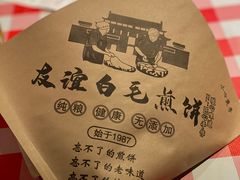 友谊白毛煎饼
纯粮 健康 无添加
始于1987
忘不了的煎饼
忘不了的老味道
忘不了的